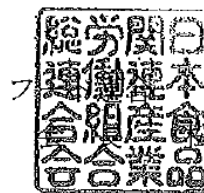 日本食品
関連産業
労働組合
総連合会
フ